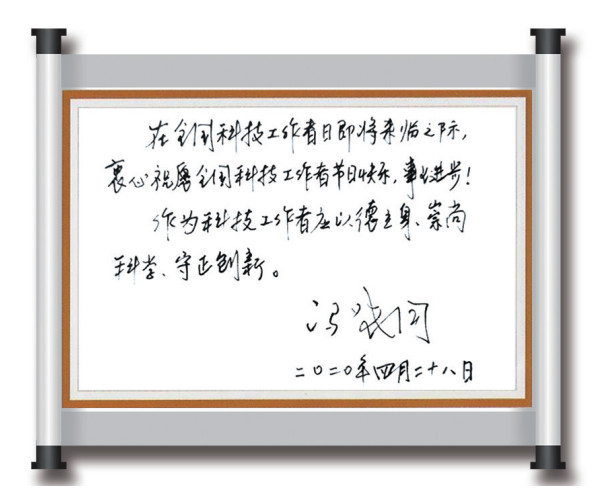 在全国科技工作者日即将来临之际,
衷心祝愿全国科技工作者节日快乐,事业进步!
作为科技工作者应以德立身、崇尚
科学、守正创新。
冯
二〇二〇年四月二十八日